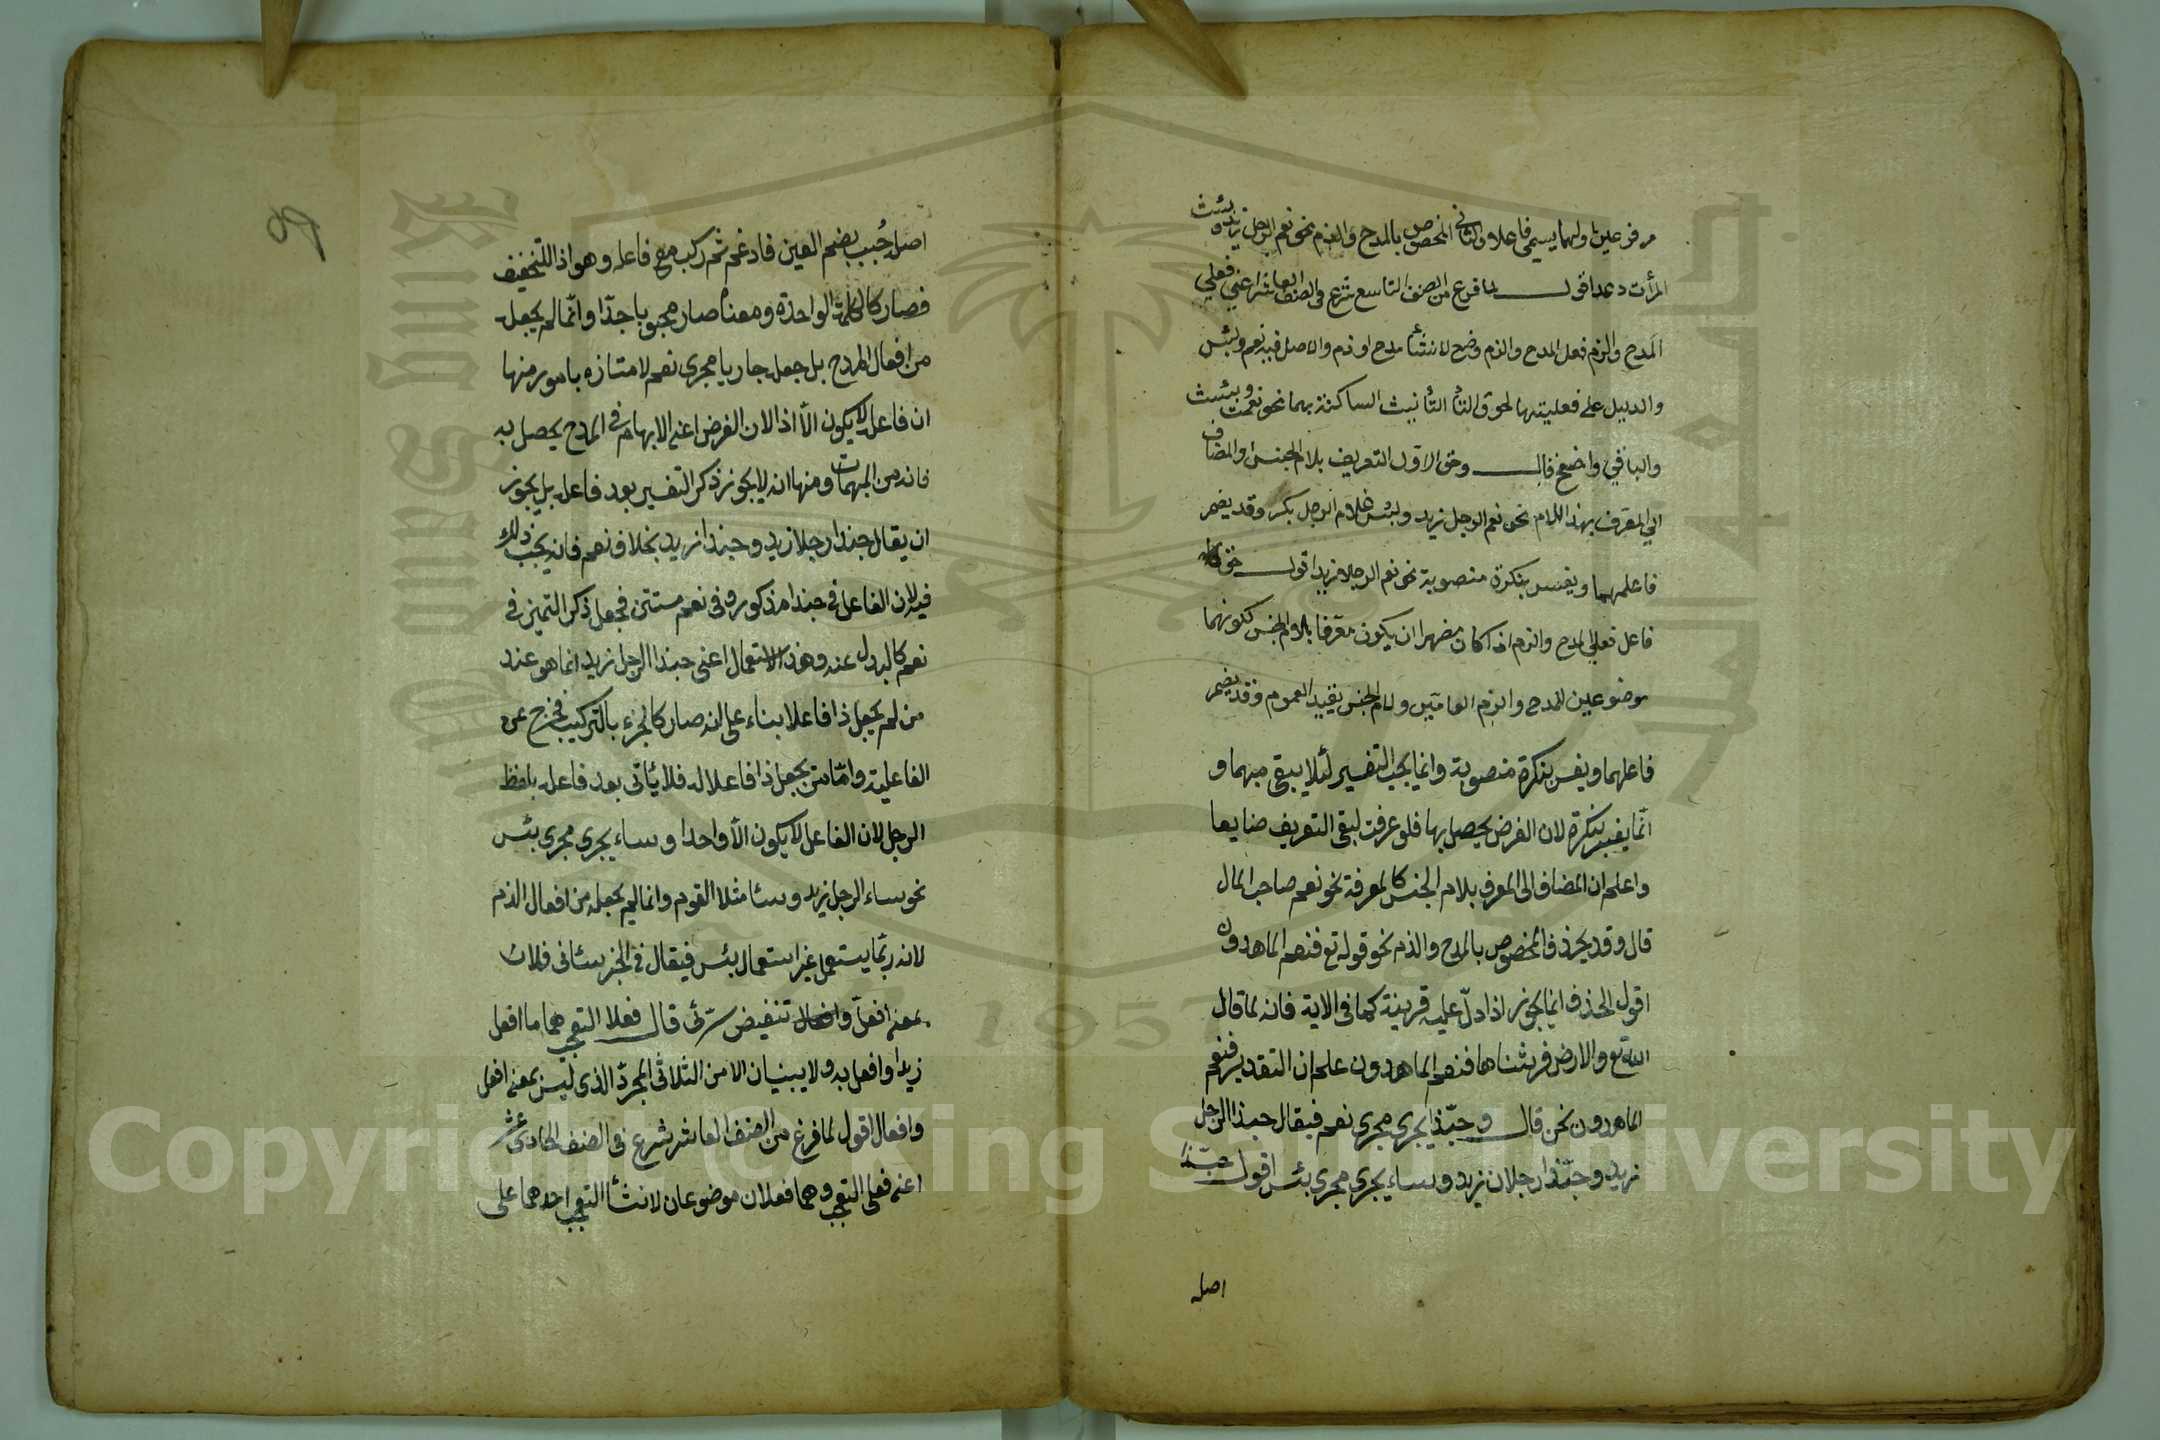 مرفوعين اولهما يسمى فاعلا والثاني المخصوص بالمدح والذم نحو نعم الرجل زيد وبئست
المرأت دعد اقول لما فرغ من الصنف التاسع شرع في الصنف العاشر اعني فعلي
المدح والذم فعل المدح والذم وضع لانشأ مدح او ذم والاصل فيه نعم وبئس
والدليل على فعليتهما لحوق التأ التأنيث الساكنة بهما نحو نعمت وبئست
والباقي واضح قال وحق الاول التعريف بلام الجنس او المضاف
الى المعرف بهذا اللام نحو نعم الرجل زيد وبئس غلام الرجل بكر وقد يضمر
فاعلهما ويفسر بنكرة منصوبة نحو نعم الرجلا زيد اقول حق
فاعل فعلي المدح والذم اذا كان مضهرا ان يكون معرفا بلام الجنس لكونهما
موضوعين للمدح والذم العامين ولام الجنس يفيد العموم وقد يضمر
فاعلهما ويفسر بنكرة منصوبة وانما يجب التفسير لئلا يبقى مبهما و
انما يفسر بنكرة لان الغرض يحصل بها فلو عرفت لبقى التعريف ضايعا
واعلم ان المضاف الى المعرف بلام الجنس كالمعرفة نحو نعم صاحب المال
قال وقد يحذف المخصوص بالمدح والذم نحو قوله تع فنعم الماهدون
اقول الحذف انما يجوز اذا دل عليه قرينة كما في الاية فانه لما قال
الله تع والارض فرشناها فنعم الماهدون علم ان التقدير فنعم
الماهدون نحن قال وحبذا يجرى مجرى نعم فيقال حبذا الرجل
زيد وحبذا رجلان زيد وساء يجرى مجرى بئس اقول حبذا
اصله
اصله حبب بضم العين فادغم ثم ركب مع فاعله وهو اذا للتخفيف
فصار كالكلمة الواحدة ومعناه صار محبوبا جدا وانما لم يجعل
من افعال المدح بل جعل جاريا مجرى نعم لامتازه بامور منها
ان فاعله لا يكون الا اذا لان الغرض اعنى الابهام في المدح يحصل به
فانه من المبهمات ومنها انه لا يجوز ذكر التفسير بعد فاعله بل يجوز
ان يقال حبذا رجلا زيد وحبذا زيد بخلاف نعم فانه يجب ذلك
فيه لان الفاعل في حبذا مذكور وفي نعم مستتر فجعل ذكر التميز في
نعم كالبدل عنه وهذا الاستعمال اعنى حبذا الرجل زيد انما هو عند
من لم يجعل ذا فاعلا بناء على انه صار كالجزء بالتركيب فخرج عن
الفاعلية واما من يجعل ذا فاعلا له فلا يأتى بعد فاعله بلفظ
الرجل لان الفاعل لا يكون الا واحدا وساء يجرى مجرى بئس
نحو ساء الرجل زيد وسا مثلا القوم وانما لم يجعله من افعال الذم
لانه ربما يستعمل غير استعمال بئس فيقال في الخبر سائنى فلان
بمعنى افعل تنقيض سرنى قال فعلا التعجب هما ما افعل
زيدا وافعل به ولا يبنيان الا من الثلاثى المجرد الذى ليس بمعنى افعل
وافعال اقول لما فرغ من الصنف العاشر شرع في الصنف الحادى عشر
اعنى فعلى التعجب وهما فعلان موضوعان لانشأ التعجب احدهما على
King Saud University
1957
Copyright © King Saud University